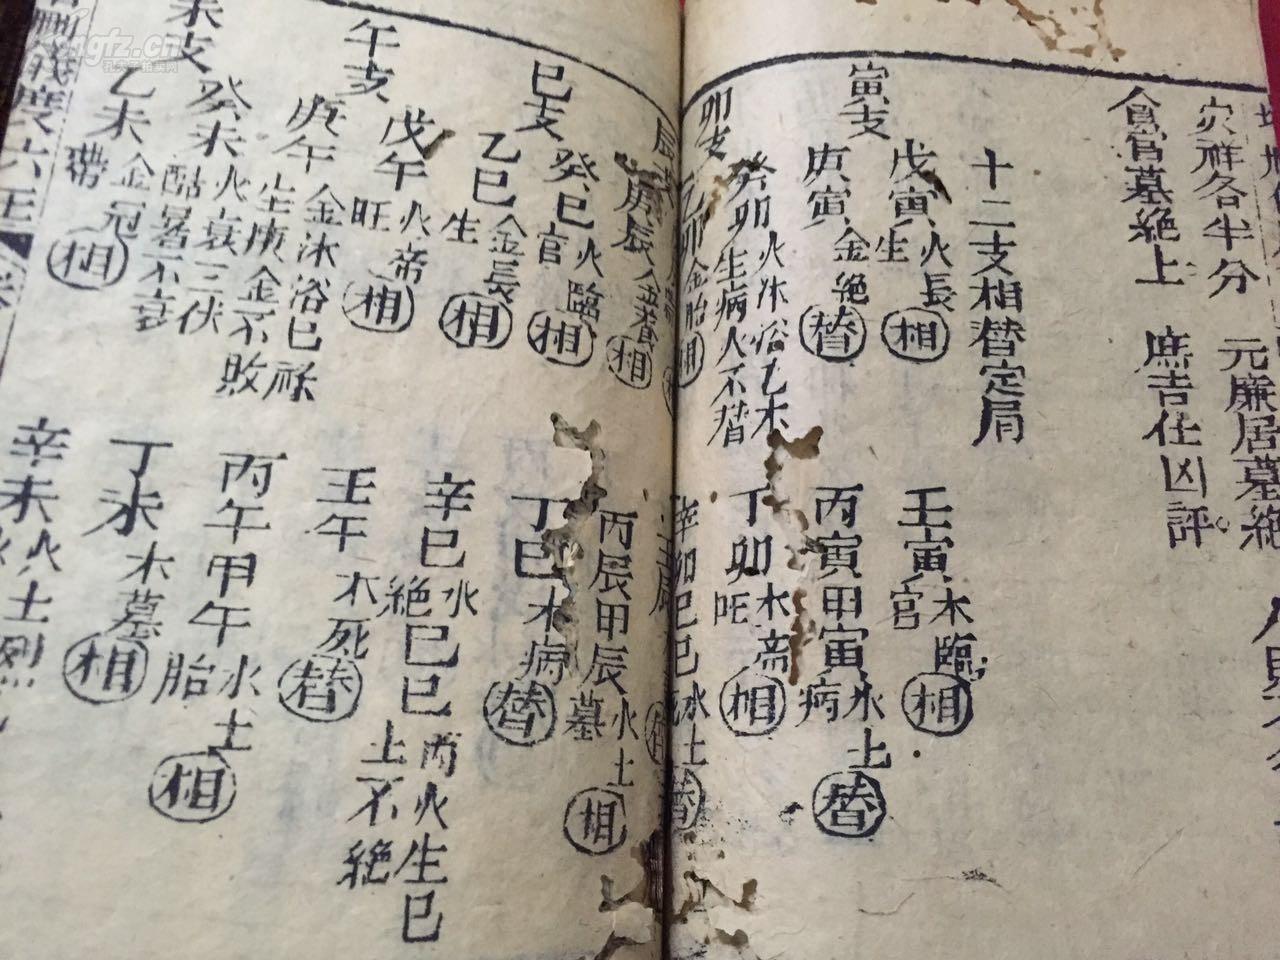 灾祥各半分　元廉居墓絕
貪官墓絕上　庶吉任凶評
十二支相替定局
寅支
戊寅火長生相　壬寅木臨官相
庚寅金絕替　丙寅甲寅水土病替
卯支
癸卯火沐浴乙木生病人不替　丁卯木帝旺相
乙卯金胎相　辛卯己巳水土死替
庚辰金養相　丙辰甲辰水土墓相
巳支
癸巳火臨官相　丁巳木病替
乙巳金長生相　辛巳水絕巳巳丙火生巳土不絕
午支
戊午火帝旺相　壬午木死替
庚午金沐浴巳祿生庚金不敗　丙午甲午水土胎相
未支
癸未火衰三伏酷暑不衰　丁未木墓相
乙未金冠帶相　辛未
度六壬
kongfz.cn
孔夫子拍卖网